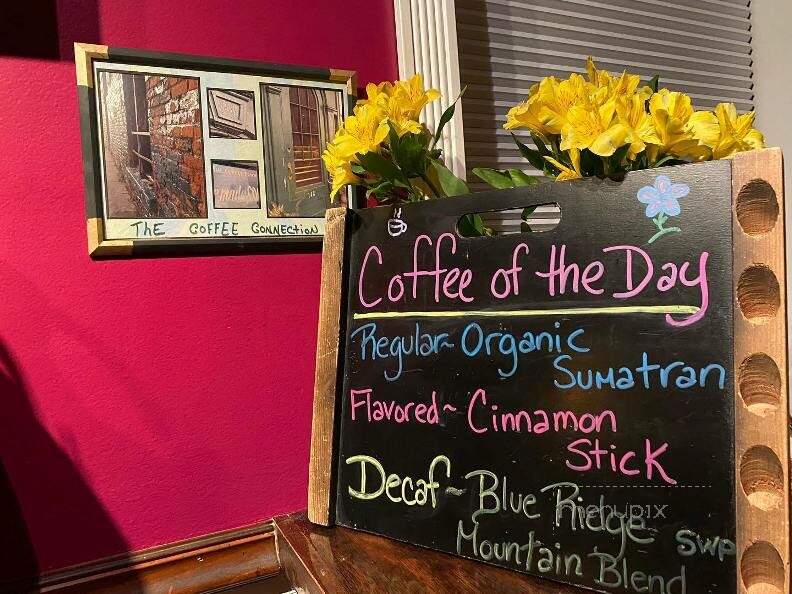 THE COFFEE CONNECTION
Coffee of the Day
Regular~ Organic
Sumatran
Flavored~ Cinnamon
Stick
Decaf~ Blue Ridge
menupix
Mountain Blend SWP